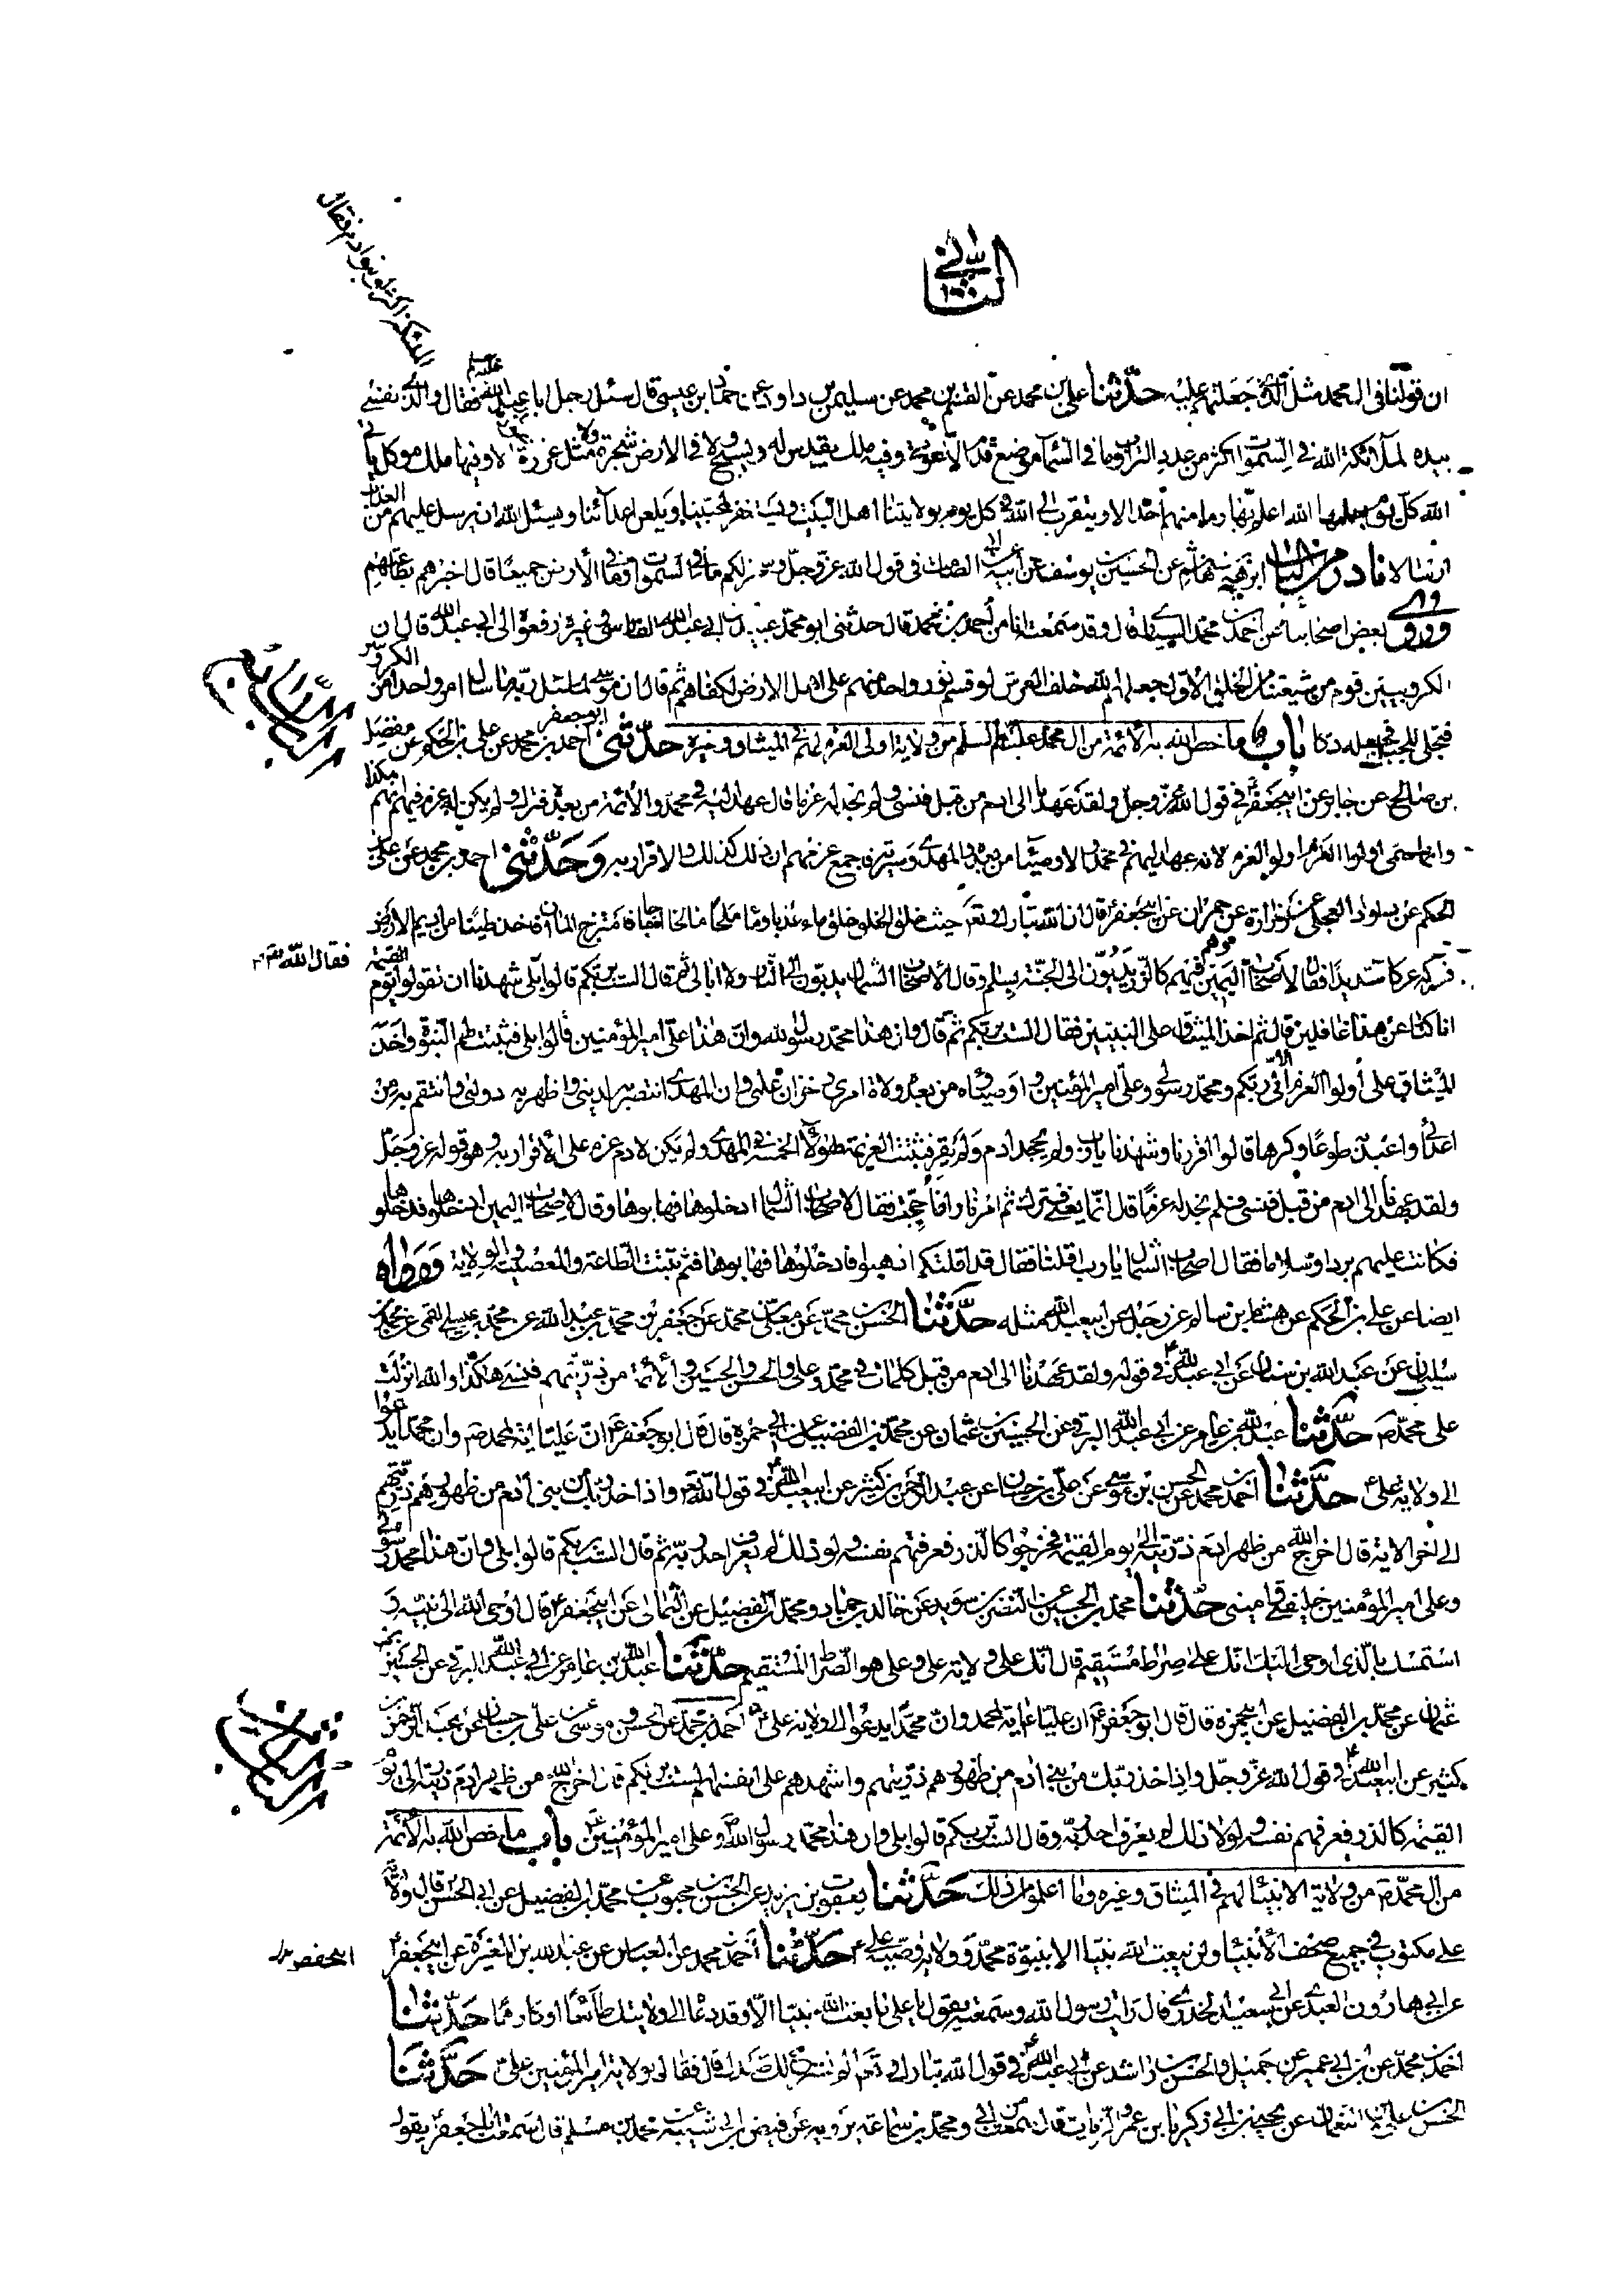 الثاني
الملئكة اكثر او بنو ادم فقال
ان قولنا في ال محمد مثل الذي جعلتم عليه حدثنا علي بن محمد عن القسم بن محمد عن سليمن بن داود عن حماد بن عيسى قال سئل رجل ابا عبد الله فقال والذي نفسي
بيده لملائكة الله في السموات اكثر من عدد التراب وما في السماء موضع قدم الا وفيه ملك يقدس له ويسبح ولا في الارض شجرة ولا مثل غرزة الا وفيها ملك موكل
الله كل يوم بعملها الله اعلم بها وما منهم احد الا ويتقرب الى الله في كل يوم بولايتنا اهل البيت ويستغفر لمحبينا ويلعن اعدائنا ويسئل الله ان يرسل عليهم من العذاب
ارسالا نادر من الباب ابرهيم بن هاشم عن الحسين بن يوسف عن ابيه عن الصادق في قول الله عز وجل وسخر لكم ما في السموات وما في الارض جميعا قال اخبرهم بطاعتهم
وروى بعض اصحابنا عن احمد بن محمد السياري قال وقد سمعته انا من احمد بن محمد قال حدثني ابو محمد عبيد بن ابي عبد الله الفارسي وغيره رفعوه الى ابي عبد الله قال ان
الكروبيين قوم من شيعتنا من الخلق الاول جعلهم الله خلف العرش لو قسم نور واحد منهم على اهل الارض لكفاهم ثم قال ان موسى لما سئل ربه ما سال امر واحدا من الكروبيين
فتجلى للجبل فجعله دكا باب ما خص الله به الائمة من ال محمد عليهم السلم من ولاية اولي العزم لهم في الميثاق وغيره حدثني ابو جعفر احمد بن محمد عن علي بن الحكم عن مفضل
بن صالح عن جابر عن ابيجعفر في قول الله عز وجل ولقد عهدنا الى ادم من قبل فنسي ولم نجد له عزما قال عهد اليه في محمد والائمة من بعده فترك ولم يكن له عزم فيهم انهم هكذا
وانما سمي اولوا العزم اولو العزم لانه عهد اليهم في محمد والاوصياء من بعده والمهدي وسيرته فاجمع عزمهم ان ذلك كذلك والاقرار به وحدثني احمد بن محمد عن علي بن
الحكم عن داود العجلي عن زرارة عن حمران عن ابيجعفر قال ان الله تبارك وتعالى حيث خلق الخلق خلق ماء عذبا وماء مالحا اجاجا فامتزج الماءان فاخذ طينا من اديم الارض
فعركه عركا شديدا فقال لاصحاب اليمين وهم فيهم كالذر يدبون الى الجنة بسلم وقال لاصحاب الشمال يدبون الى النار ولا ابالي ثم قال الست بربكم قالوا بلى شهدنا ان تقولوا يوم القيمة
فقال الله
انا كنا عن هذا غافلين قال ثم اخذ الميثاق على النبيين فقال الست بربكم ثم قال وان هذا محمد رسول الله وان هذا علي امير المؤمنين قالوا بلى فثبتت لهم النبوة واخذ
الميثاق على اولوا العزم اني ربكم ومحمد رسولي وعلي امير المؤمنين واوصيائه من بعده ولاة امري وخزان علمي وان المهدي انتصر به لديني واظهر به دولتي وانتقم به من
اعدائي واعبد به طوعا وكرها قالوا اقررنا وشهدنا يا رب ولم يجحد ادم ولم يقر فثبتت العزيمة لهؤلاء الخمسة في المهدي ولم يكن لادم عزم على الاقرار به وهو قوله عز وجل
ولقد عهدنا الى ادم من قبل فنسي فلم نجد له عزما قال انما يعني فترك ثم امر نارا فاججت فقال لاصحاب الشمال ادخلوها فهابوها وقال لاصحاب اليمين ادخلوها فدخلوها
فكانت عليهم بردا وسلاما فقال اصحاب الشمال يا رب اقلنا فقال قد اقلتكم اذهبوا فادخلوها فهابوها فثم ثبتت الطاعة والمعصية والولاية ورواه
ايضا عن علي بن الحكم عن هشام بن سالم عن رجل عن ابيعبد الله مثله حدثنا الحسن بن محمد عن معلى بن محمد عن جعفر بن محمد بن عبد الله عن محمد بن عيسى القمي عن محمد بن
سليمان عن عبد الله بن سنان عن ابي عبد الله في قوله ولقد عهدنا الى ادم من قبل كلمات في محمد وعلي والحسن والحسين والائمة من ذريتهم فنسي هكذا والله انزلت
على محمد ص حدثنا عبد الله بن عامر عن ابي عبد الله البرقي عن الحسين بن عثمان عن محمد بن الفضيل عن ابي حمزة قال قال ابو جعفر ع ان عليا اية لمحمد ص وان محمدا يدعوا
الى ولاية علي ع حدثنا احمد بن محمد عن الحسن بن موسى عن علي بن حسان عن عبد الرحمن بن كثير عن ابيعبد الله في قول الله تع واذ اخذ ربك من بني ادم من ظهورهم ذريتهم
الى اخر الاية قال اخرج الله من ظهر ادم ذريته الى يوم القيمة فخرجوا كالذر فعرفهم نفسه ولو ذلك لم يعرف احد ربه ثم قال الست بربكم قالوا بلى وان هذا محمد رسولي
وعلي امير المؤمنين خليفتي واميني حدثنا محمد بن الحسين عن النضر بن سويد عن خالد بن حماد ومحمد بن الفضيل عن الثمالي عن ابيجعفر قال اوحى الله الى نبيه و
استمسك بالذي اوحي اليك انك على صراط مستقيم قال انك على ولاية علي وعلي هو الصراط المستقيم حدثنا عبد الله بن عامر عن ابي عبد الله البرقي عن الحسين بن
عثمان عن محمد بن الفضيل عن ابيحمزة قال قال ابو جعفر ع ان عليا اية لمحمد وان محمدا يدعوا الى ولاية علي احمد بن محمد عن الحسن بن موسى عن علي بن حسان عن عبد الرحمن بن
كثير عن ابيعبد الله في قول الله عز وجل واذ اخذ ربك من بني ادم من ظهورهم ذريتهم واشهدهم على انفسهم الست بربكم قال اخرج الله من ظهر ادم ذريته الى يوم
القيمة كالذر فعرفهم نفسه ولولا ذلك لم يعرف احد ربه وقال الست بربكم قالوا بلى وان هذا محمد رسول الله وعلي امير المؤمنين باب ما خص الله به الائمة
من ال محمد ص من ولاية الانبياء لهم في الميثاق وغيره وما اعلموا من ذلك حدثنا يعقوب بن يزيد عن الحسن بن محبوب عن محمد بن الفضيل عن ابي الحسن قال ولاية
علي مكتوب في جميع صحف الانبياء ولن يبعث الله نبيا الا بنبوة محمد وولاية وصيه علي ع حدثنا احمد بن محمد عن العباس عن عبد الله بن المغيرة عن ابيجعفر
ابيحفص
عن ابي هارون العبدي عن ابي سعيد الخدري قال رايت رسول الله وسمعته يقول يا علي ما بعث الله نبيا الا وقد دعا الى ولايتك طائعا او كارها حدثنا
احمد بن محمد عن ابن ابي عمير عن جميل والحسن بن راشد عن ابي عبد الله في قول الله تبارك وتعالى الم نشرح لك صدرك قال فقال بولاية امير المؤمنين علي حدثنا
الحسن بن علي بن النعمان عن يحيى بن ابي زكريا بن عمرو الزيات قال سمعت من ابي ومحمد بن سماعة يرويه عن فيض بن ابي شيبة عن محمد بن مسلم قال سمعت ابا جعفر يقول